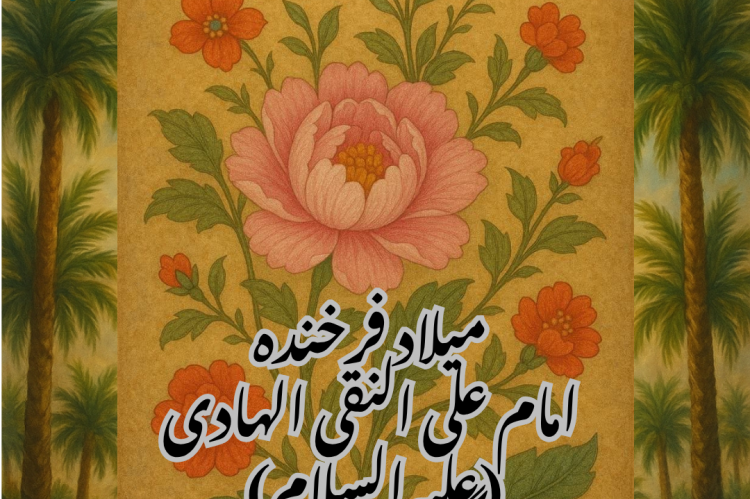 میلاد فرخنده
امام علی النقی الهادی
(علیه السلام)